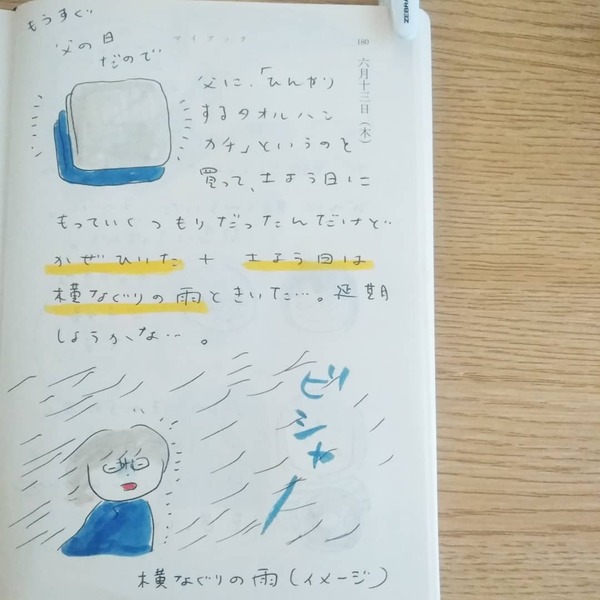 もうすぐ
父の日
だので
マイブック
180
六月十三日(木)
父に、「ひんやり
するタオルハン
カチ」というのを
買って、土よう日に
もっていくつもりだったんだけど…
かぜひいた + 土よう日は
横なぐりの雨ときいた…。延期
しようかな…。
ビシャー
横なぐりの雨(イメージ)
ZEBRA